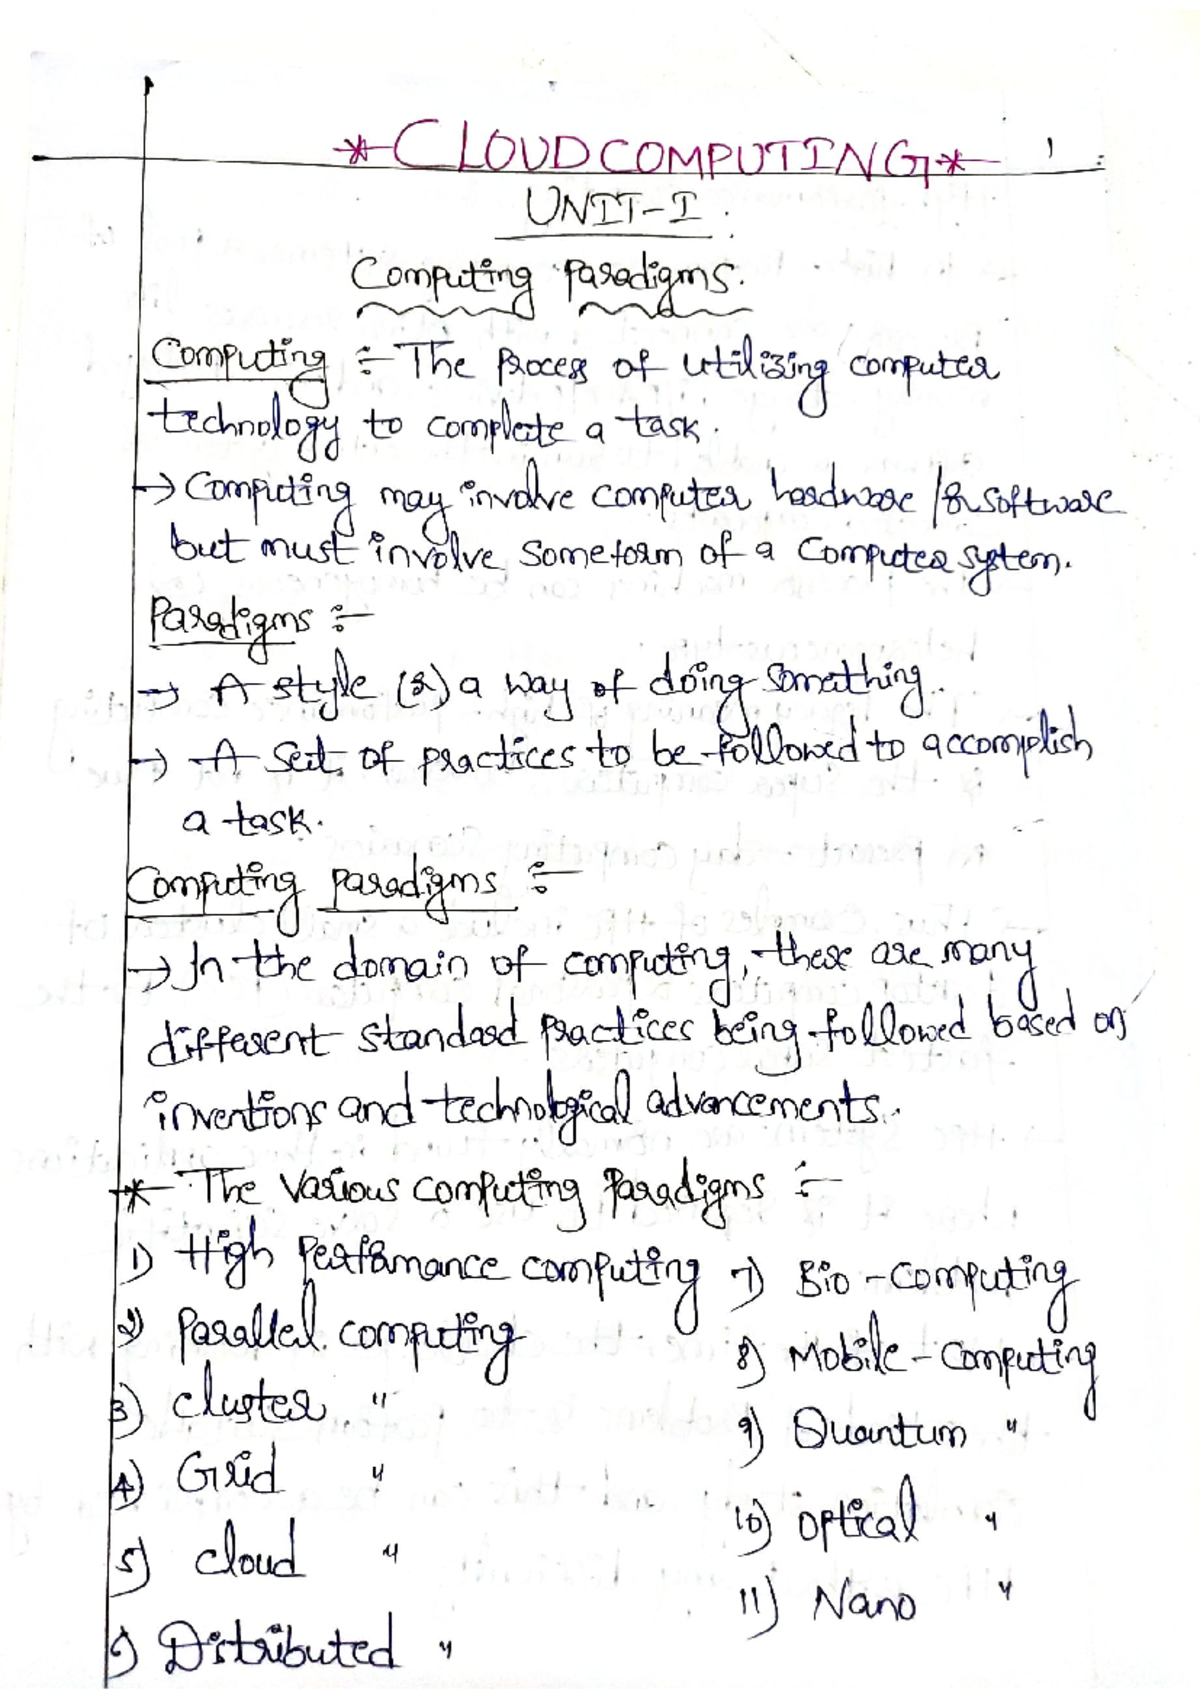 *CLOUDCOMPUTING* 1
UNIT-I.
Computing Paradigms.
Computing :- The Process of utilizing computer
technology to complete a task.
→ Computing may involve computer hardware /& software
but must involve some form of a Computer system.
Paradigms :-
→ A style (or) a way of doing something.
→ A set of practices to be followed to accomplish
a task.
Computing paradigms :-
→ In the domain of computing, there are many
different standard practices being followed based on
inventions and technological advancements.
* The Various computing Paradigms :-
1) High Performance computing
2) Parallel computing
3) cluster "
4) Grid "
5) cloud "
6) Distributed "
7) Bio-Computing
8) Mobile-Computing
9) Quantum "
10) optical "
11) Nano "